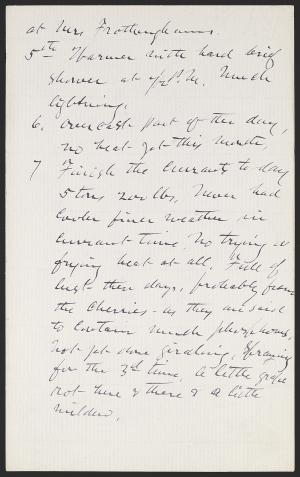 at Mrs Frothinghams.
5th Warmer with hard brief
shower at P.M. Much
lightning.
6. Overcast part of the day,
no heat yet this month.
7 Finish the currants to day
5 tons 200 lbs, never had
cooler finer weather in
currant time, No trying or
frying heat at all. Full of
lust these days, probably from
the cherries - as they are said
to contain much phosphorus,
Not yet done girdling, Spraying
for the 3d time, A little grape
rot here & there & a little
mildew.